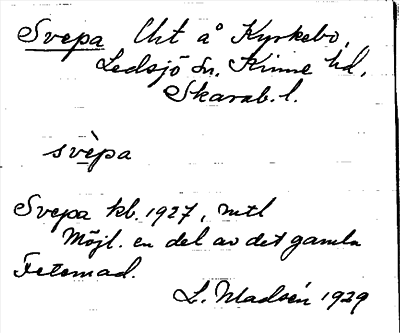 Svepa Uht å Kyrkebo,
Ledsjö sn. Kinne hd.
Skarab. l.
svèpa
Svepa kb. 1927, mtl
Möjl. en del av det gamla
Fetomad.
L. Madsén 1929